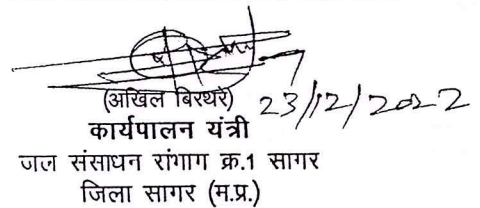 (अखिल बिरथरे) 23/12/2022
कार्यपालन यंत्री
जल संसाधन रांभाग क्र.1 सागर
जिला सागर (म.प्र.)